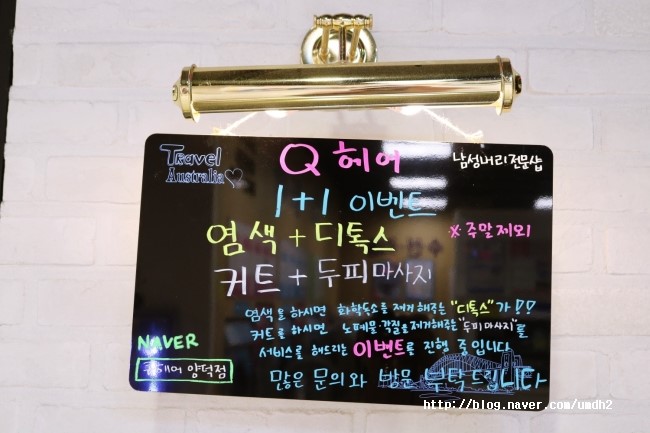 Travel
Australia
Q 헤어
남성머리전문샵
1+1 이벤트
염색 + 디톡스
※주말제외
커트 + 두피마사지
염색을 하시면 화학독소를 제거해주는 "디톡스"가!!
커트를 하시면 노폐물·각질을 제거해주는 "두피마사지"를
서비스로 해드리는 이벤트를 진행 중입니다
NAVER
큐헤어 양덕점
많은 문의와 방문 부탁드립니다
http://blog.naver.com/umdh2